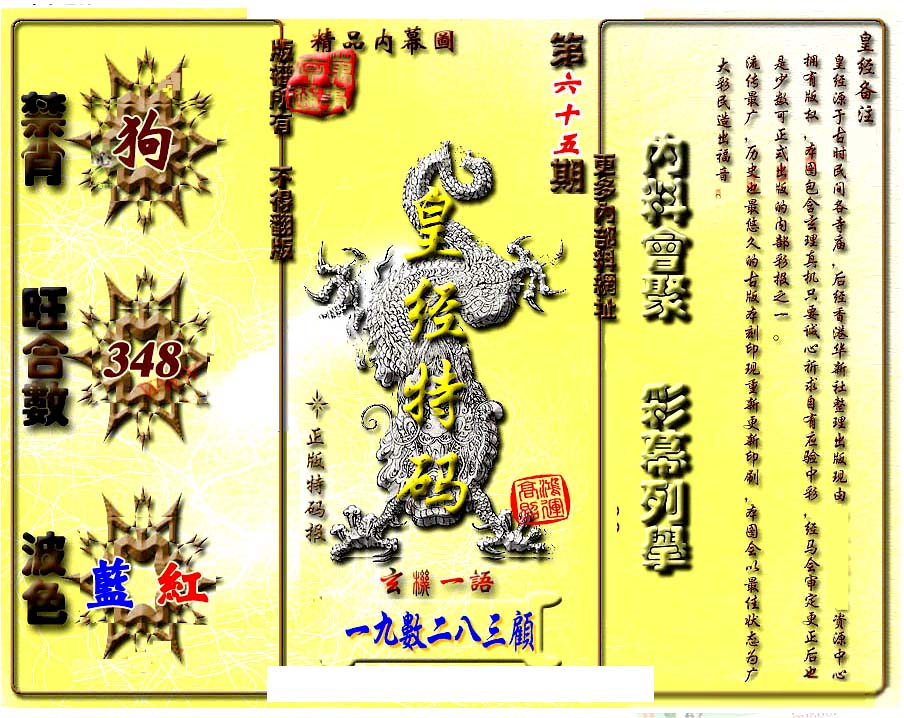 精品内幕圖
版權所有 不得翻版
第六十五期
更多內部料網址
禁肖
狗
旺合數
348
波色
藍 紅
皇经特码
正版特码报
鴻運高照
玄機一語
一九數二八三顧
內料會聚
彩幕列舉
皇经备注
皇经源于古时民间各寺庙,后经香港华新社整理出版现由 资源中心
拥有版权,本图包含玄理真机只要诚心祈求自有应验中彩,经马会审定更正后也
是少数可正式出版的内部彩报之一。
流传最广,历史也最悠久的古版本刻印现重新更新印刷,本图会以最佳状态为广
大彩民造出福音